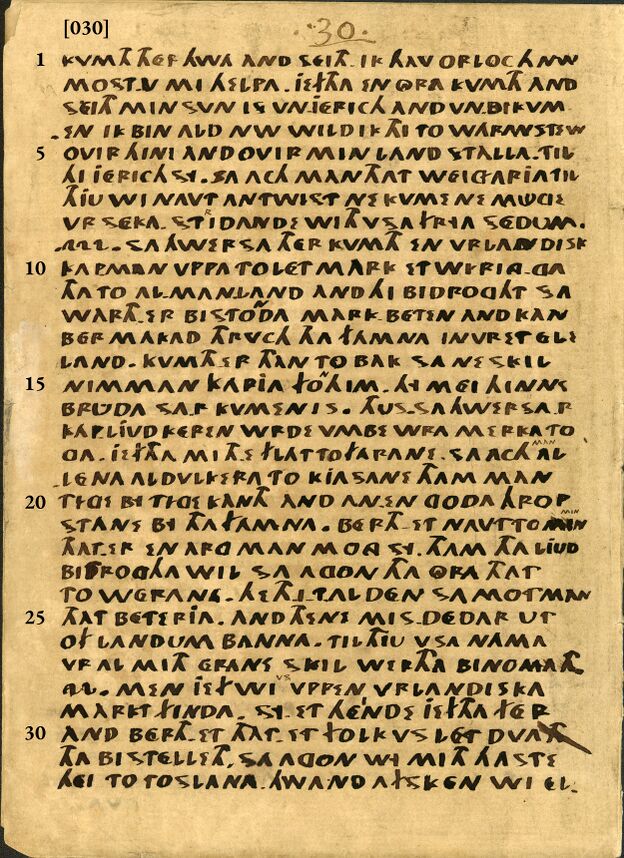 [030]
30
1 KVMTH THER HWA AND SEITH. IK HAV ORLOCH NW
MOST.V MI HELPA. IEFTHA EN ORA KVMTH AND
SEITH MIN SUN IS VN.IERICH AND VN.BIKVM
.EN IK BIN ALD NW WILDIK THI TO WARANSTEW
5 OVIR HINI AND OVIR MIN LAND STALLA. TIL
HI IERICH SY. SA ACH MAN THAT WEIGARIA TIL
THIU WI NAVT AN TWIST NE KVME NE MUGE
VR SEKA. STRIDANDE WITH VSA FRYA SEDUM.
SA HWERSA THER KVMTH EN VRLANDISK
10 KAPMAN VPPA TOLETMARK ET
THA TO ALMANLAND AND HI BIDROGHT SA
WARTH.ER BISTONDA MARK.BETEN AND KAN
BER MAKAD THRVCH THA FAMNA IN VR ET ELE
LAND. KVMTH.ER THAN TO BAK SA NE SKIL
15 NIMMAN KAPIA TO HIM. HY MEI HINNE
BRUDA SA.R KVMEN IS. THUS SAHWERSA.R
KAP.LIUD KEREN WRDE VMBE WRA MERKA TO
GA. IEFTHA MITH.E FLAT TO FARANE. SA ACH MAN AL
.LENA ALDULKERA TO KIASANE THAM MAN
20 TIGE BY TIGE KANTH AND AN.EN GODA HROP
STANE BY THA FAMNA. BERTH.ET NAVT TO MIN
THAT.ER EN ARG MAN MOG SY. THAM THA LIUD
BIDROGHA WIL SA AGON THA ORA THAT
TO WERANE. HETH.I.T ALDEN SA MOT MAN
25 THAT BETERIA. AND THENE MIS.DEDAR UT
OF LANDUM BANNA. TIL THIU VSA NAMA
VR AL MITH ERANE SKIL WERTHA BINOMATH
MEN IEF WI VS VPPEN VRLANDISKA
MARKT FINDA. SY.ET HEINDE IEFTHA FER
30 AND BERTH.ET THAT.ET FOLK VS LET DVATH
THA BISTELLETH. SA AGON WY MITH HASTE
HEI TO TOSLANA. HWAND AFSKEN WI EL.